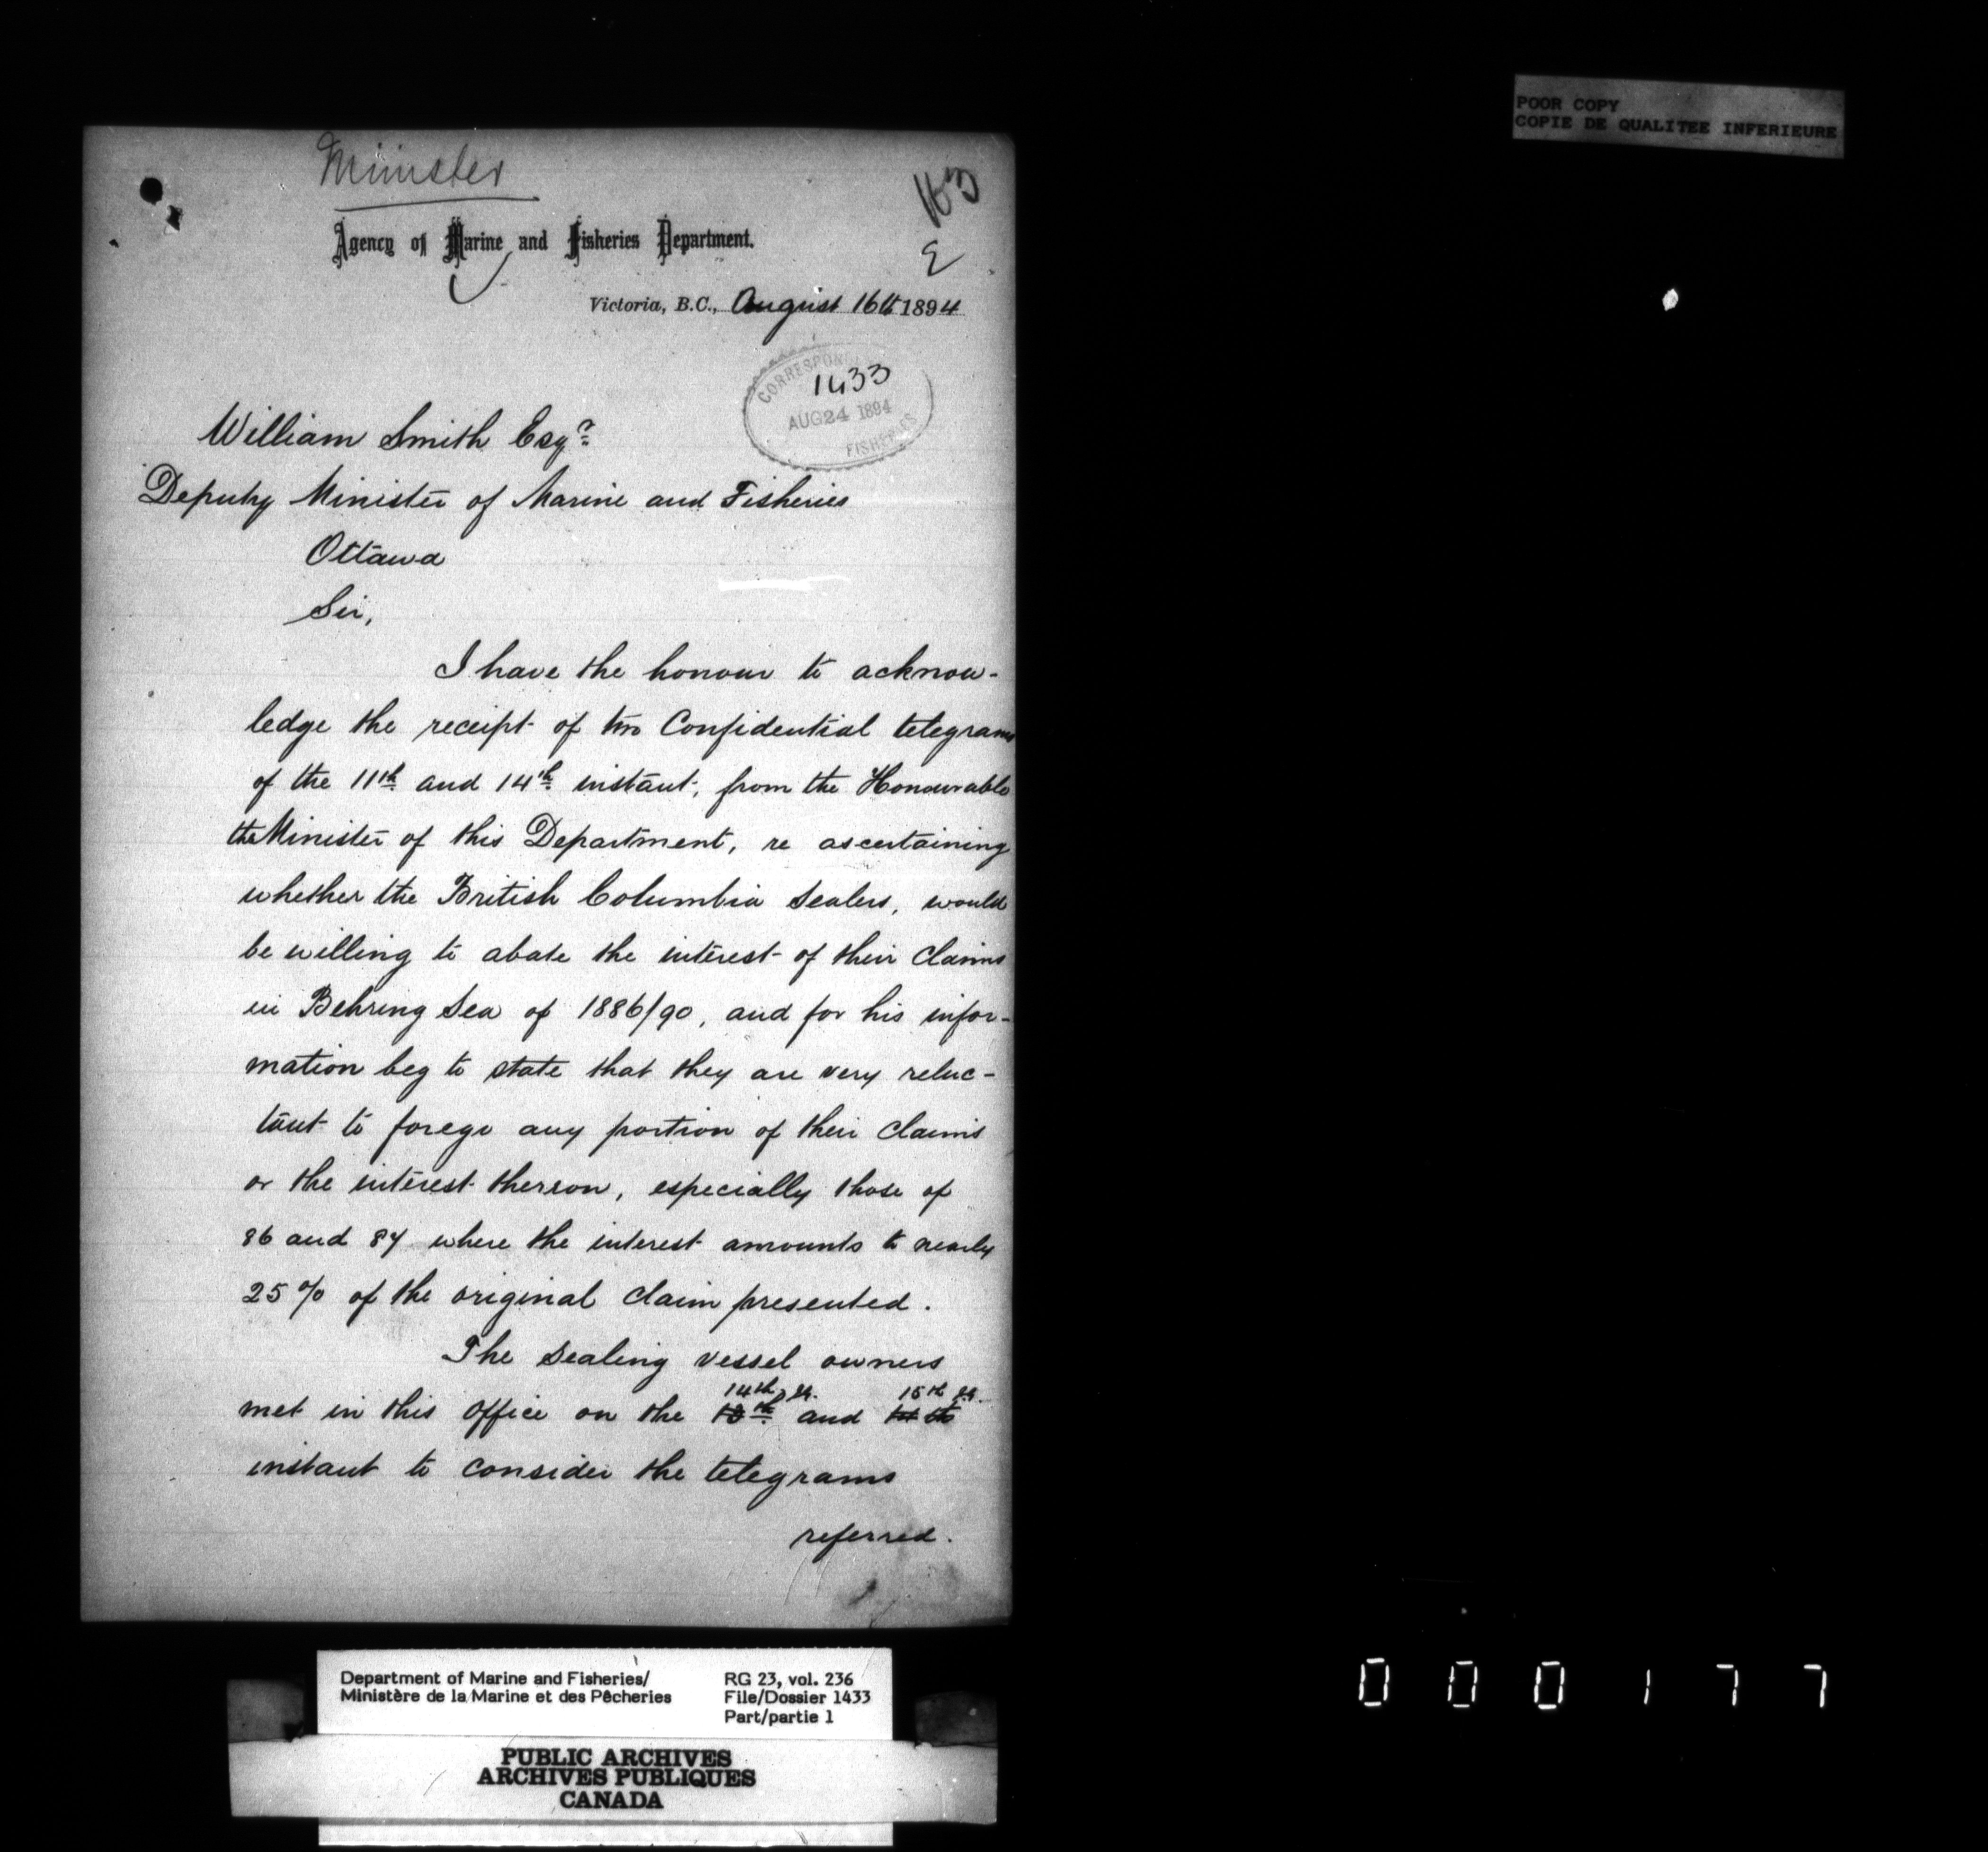 Minister
163
Agency of Marine and Fisheries Department.
Victoria, B.C., August 16th 1894
CORRESPONDENCE
1433
AUG 24 1894
FISHERIES
William Smith Esqr.
Deputy Minister of Marine and Fisheries
Ottawa
Sir,
I have the honour to acknow-
ledge the receipt of two Confidential telegrams
of the 11th and 14th instant, from the Honourable
the Minister of this Department, re ascertaining
whether the British Columbia Sealers, would
be willing to abate the interest of their Claims
in Behring Sea of 1886/90, and for his infor-
mation beg to state that they are very reluc-
tant to forego any portion of their Claims
or the interest thereon, especially those of
86 and 87 where the interest amounts to nearly
25% of the original Claim presented.
The Sealing vessel owners
14th 15th
met in this office on the 13th and
instant to consider the telegrams
referred.
Department of Marine and Fisheries/
Ministère de la Marine et des Pêcheries
RG 23, vol. 236
File/Dossier 1433
Part/partie 1
PUBLIC ARCHIVES
ARCHIVES PUBLIQUES
CANADA
POOR COPY
COPIE DE QUALITEE INFERIEURE
000177